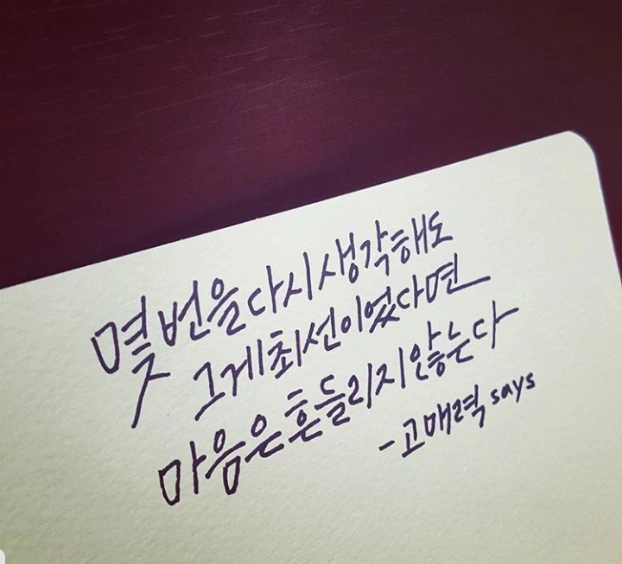 몇 번을 다시 생각해도
그게 최선이었다면
마음은 흔들리지 않는다
-고매력 says